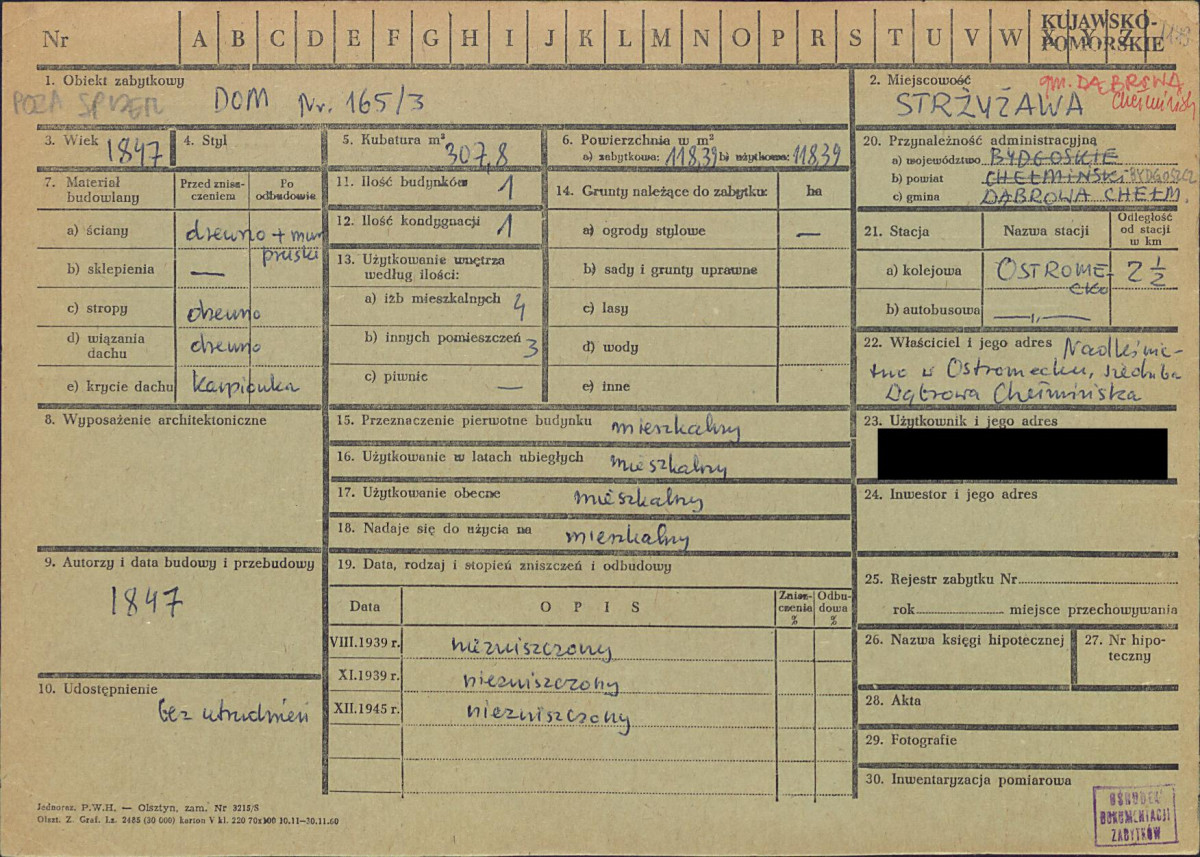 Nr A B C D E F G H I J K L M N O P R S T U V W X Y Z
KUJAWSKO-
POMORSKIE
1. Obiekt zabytkowy
DOM Nr. 165/3
POZA
2. Miejscowość
gm. DĄBROWA
Chełmińsk
STRŻYŻAWA
3. Wiek 1847
4. Styl
5. Kubatura m³
307,8
6. Powierzchnia w m²
a) zabytkowa: 118,39 b) użytkowa: 118,39
20. Przynależność administracyjną
a) województwo BYDGOSKIE
b) powiat CHEŁMIŃSKI BYDGOSZCZ
c) gmina DĄBROWA CHEŁM.
7. Materiał
budowlany
Przed znisz-
czeniem
Po
odbudowie
a) ściany drewno + mur
pruski
b) sklepienia —
c) stropy drewno
d) wiązania
dachu drewno
e) krycie dachu karpiówka
11. Ilość budynków 1
12. Ilość kondygnacji 1
13. Użytkowanie wnętrza
według ilości:
a) izb mieszkalnych 4
b) innych pomieszczeń 3
c) piwnic —
14. Grunty należące do zabytku: ha
a) ogrody stylowe —
b) sady i grunty uprawne
c) lasy
d) wody
e) inne
21. Stacja
Nazwa stacji
Odległość
od stacji
w km
a) kolejowa OSTROME-
CKO 2 ½
b) autobusowa —„—
22. Właściciel i jego adres Nadleśnic-
two w Ostromecku, siedziba
Dąbrowa Chełmińska
8. Wyposażenie architektoniczne
15. Przeznaczenie pierwotne budynku mieszkalny
16. Użytkowanie w latach ubiegłych mieszkalny
17. Użytkowanie obecne mieszkalny
18. Nadaje się do użycia na mieszkalny
23. Użytkownik i jego adres
24. Inwestor i jego adres
9. Autorzy i data budowy i przebudowy
1847
10. Udostępnienie
bez utrudnień
19. Data, rodzaj i stopień zniszczeń i odbudowy
Data
O P I S
Znisz-
czenia
%
Odbu-
dowa
%
VIII.1939 r. niezniszczony
XI.1939 r. niezniszczony
XII.1945 r. niezniszczony
25. Rejestr zabytku Nr
rok miejsce przechowywania
26. Nazwa księgi hipotecznej
27. Nr hipo-
teczny
28. Akta
29. Fotografie
30. Inwentaryzacja pomiarowa
Jednoraz. P.W.H. — Olsztyn, zam. Nr 3215/S
Olszt. Z. Graf. Lz. 2485 (30 000) karton V kl. 220 70x100 10.11—30.11.60
OŚRODEK
DOKUMENTACJI
ZABYTKÓW